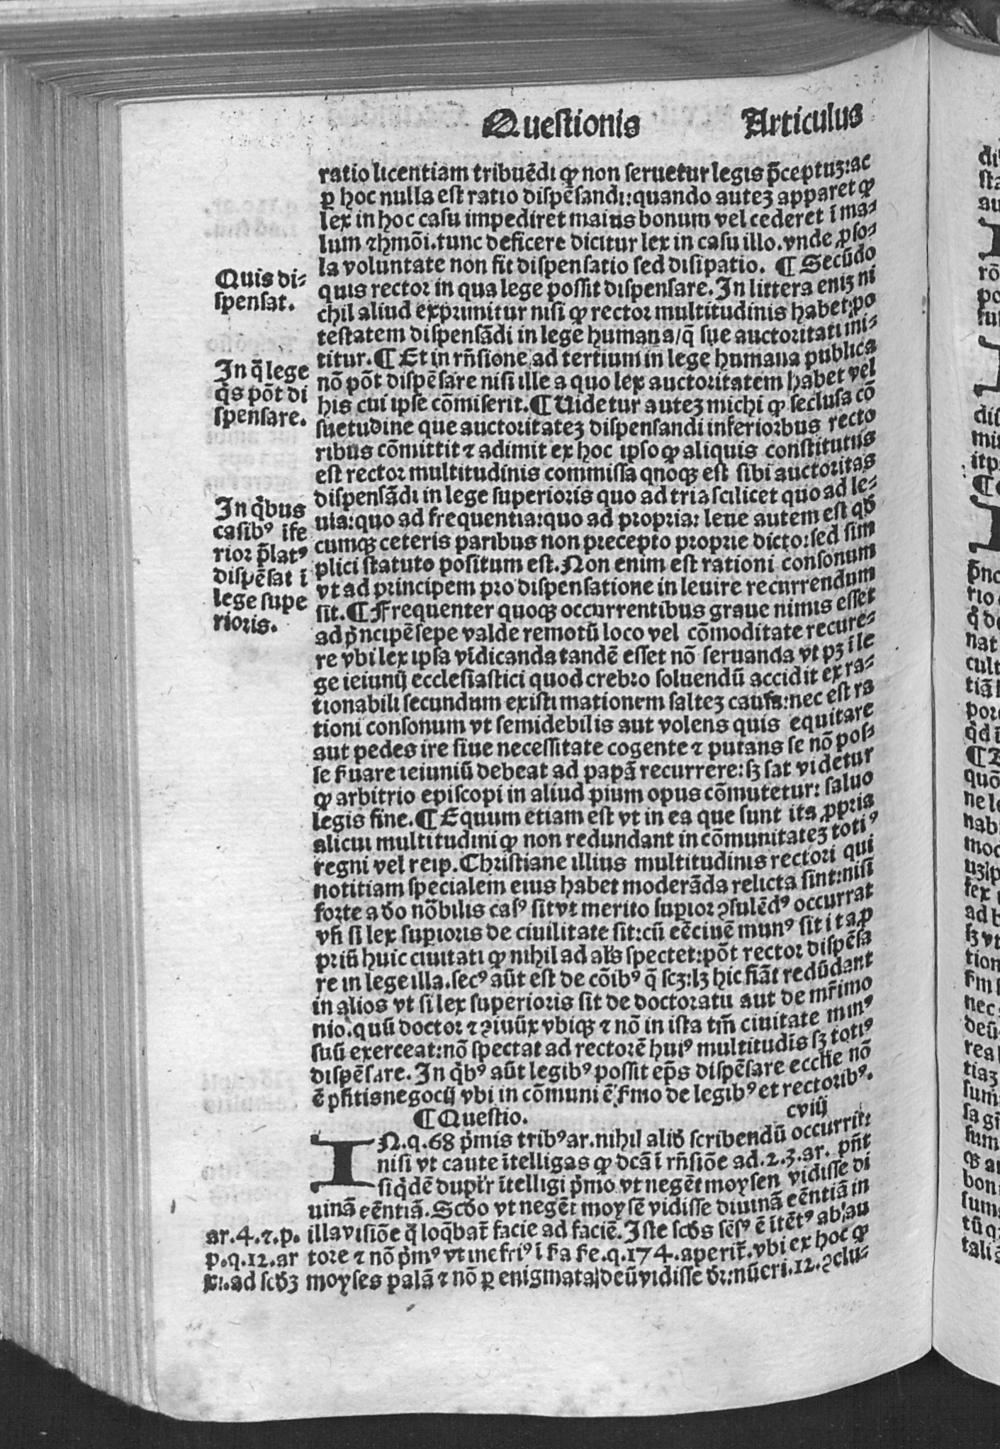 Questionis Articulus
ratio licentiam tribuēdi ꝙ non seruetur legis p̄ceptuꝫ: ac
ꝑ hoc nulla est ratio dispēsandi: quando auteꝫ apparet ꝙ
lex in hoc casu impediret maius bonum vel cederet ī ma⸗
lum ⁊hmōi. tunc deficere dicitur lex in casu illo. vnde ꝓ so⸗
la voluntate non fit dispensatio sed disipatio. ¶ Secūdo
quis rector in qua lege possit dispensare. In littera eniꝫ ni
chil aliud exprimitur nisi ꝙ rector multitudinis habet: po
testatem dispensādi in lege humana/q̄ sue auctoritati ini⸗
titur. ¶ Et in rñsione ad tertium in lege humana publica
nō pōt dispēsare nisi ille a quo lex auctoritatem habet vel
his cui ipse cōmiserit. ¶ Uidetur auteꝫ michi ꝙ seclusa cō
suetudine que auctoritateꝫ dispensandi inferioribus recto
ribus cōmittit ⁊ adimit ex hoc ipso ꝙ aliquis constitutus
est rector multitudinis commissa qnoqꝫ est sibi auctoritas
dispensādi in lege superioris quo ad tria scilicet quo ad le⸗
uia: quo ad frequentia: quo ad propria: leue autem est qď
cumqꝫ ceteris paribus non precepto proprie dicto: sed sim
plici statuto positum est. Non enim est rationi consonum
vt ad principem pro dispensatione in leuire recurrendum
sit. ¶ Frequenter quoqꝫ occurrentibus graue nimis esset
ad p̄ncipē sepe valde remotū loco vel cōmoditate recure⸗
re vbi lex ipsa vīdicanda tandē esset nō seruanda vt pꝫ ī le
ge ieiunij ecclesiastici quod crebro soluendū accidit ex ra⸗
tionabili secundum existimationem salteꝫ causa: nec est ra
tioni consonum vt semidebilis aut volens quis equitare
aut pedes ire siue necessitate cogente ⁊ putans se nō pos⸗
se s̄uare ieiuniū debeat ad papā recurrere: sꝫ sat videtur
ꝙ arbitrio episcopi in aliud pium opus cōmutetur: saluo
legis fine. ¶ Equum etiam est vt in ea que sunt ita ꝓpria
alicui multitudini ꝙ non redundant in cōmunitateꝫ totiꝰ
regni vel reip. Christiane illius multitudinis rectori qui
notitiam specialem eius habet moderāda relicta sint: nisi
forte adō nōbilis casꝰ sit vt merito supior ↄsulēdꝰ occurrat
vñ si lex supioris de ciuilitate sit: cū eē ciuē munꝰ sit ita ꝓ
priū huic ciuitati ꝙ nihil ad al̄s spectet: pōt rector dispēsa
re in lege illa. secꝰ aūt est de cōibꝰ q̄ scꝫ: lꝫ hic fiāt redūdant
in alios vt si lex superioris sit de doctoratu aut de mr̄imo
nio. quū doctor ⁊ ↄiuūx vbiqꝫ ⁊ nō in ista tm̄ ciuitate minꝰ
suū exerceat: nō spectat ad rectorē huiꝰ multitudīs sꝫ totiꝰ
dispēsare. In qͥbꝰ aūt legibꝰ possit ep̄s dispēsare ecclīe nō
ē pn̄tis negocij vbi in cōmuni ē s̄mo de legibꝰ et rectoribꝰ.
¶ Questio. cviij
IN. q. 68 p̄mis tribꝰ ar. nihil aliď scribendū occurrit:
nisi vt caute ītelligas ꝙ dcā ī rñsiōe ad. 2. 3. ar. pñt
siq̄dē dupl̄r ītelligi p̄mo vt neget moysen vidisse di
uinā eēntiā. Scďo vt negēt moysē vidisse diuinā eēntiā in
illa visiōe q̄ loq̄bat̄ facie ad faciē. Iste scďs sēsꝰ ē itētꝰ ab au
tore ⁊ nō p̄mꝰ vt inferiꝰ ī s̄a se. q. 174. aperit̄. vbi ex hoc ꝙ
moyses palā ⁊ nō ꝑ enigmata deū vidisse dr̄: nūeri. 12. ↄclu⸗
Quis di⸗
spensat.
In q̄ lege
qͥs pōt di
spensare.
In qͥbus
casibꝰ īfe
rior p̄latꝰ
dispēsat ī
lege supe
rioris.
ar. 4. ⁊. p.
p. q. 12. ar
xi. ad scďꝫ